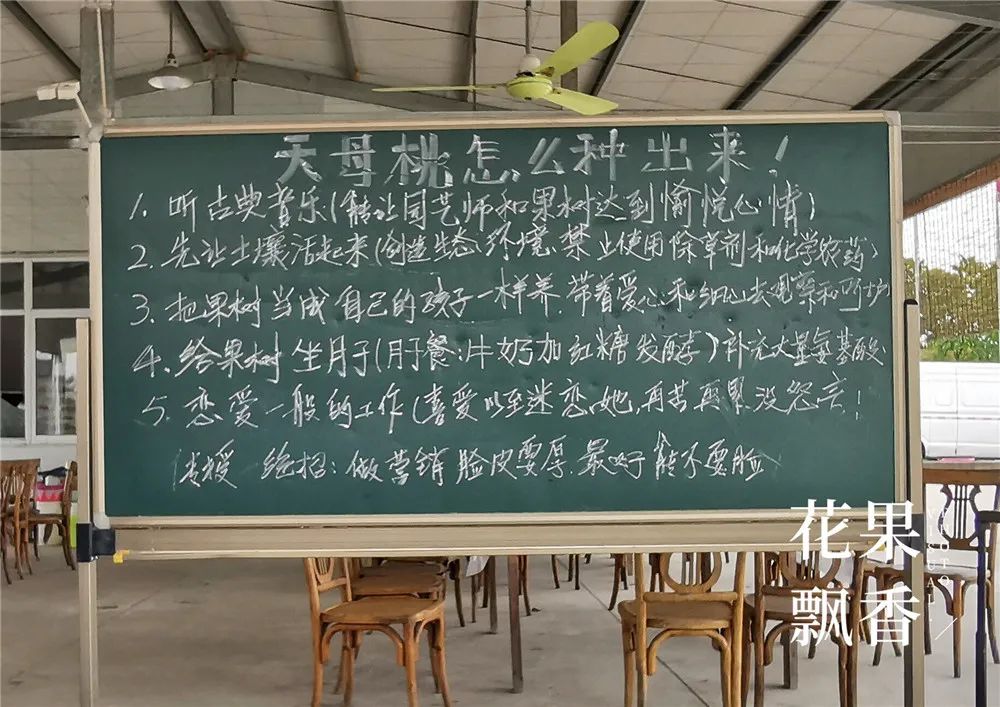 天母桃怎么种出来！
1. 听古典音乐（能让园艺师和果树达到愉悦心情）
2. 先让土壤活起来（创造生态环境，禁止使用除草剂和化学农药）
3. 把果树当成自己的孩子一样养，带着爱心和细心去观察和呵护
4. 给果树坐月子（月子餐：牛奶加红糖发酵）补充大量氨基酸
5. 恋爱一般的工作（喜爱以至迷恋她，再苦再累没怨言！
传授 绝招：做营销脸皮要厚，最好能不要脸
花果
飘香